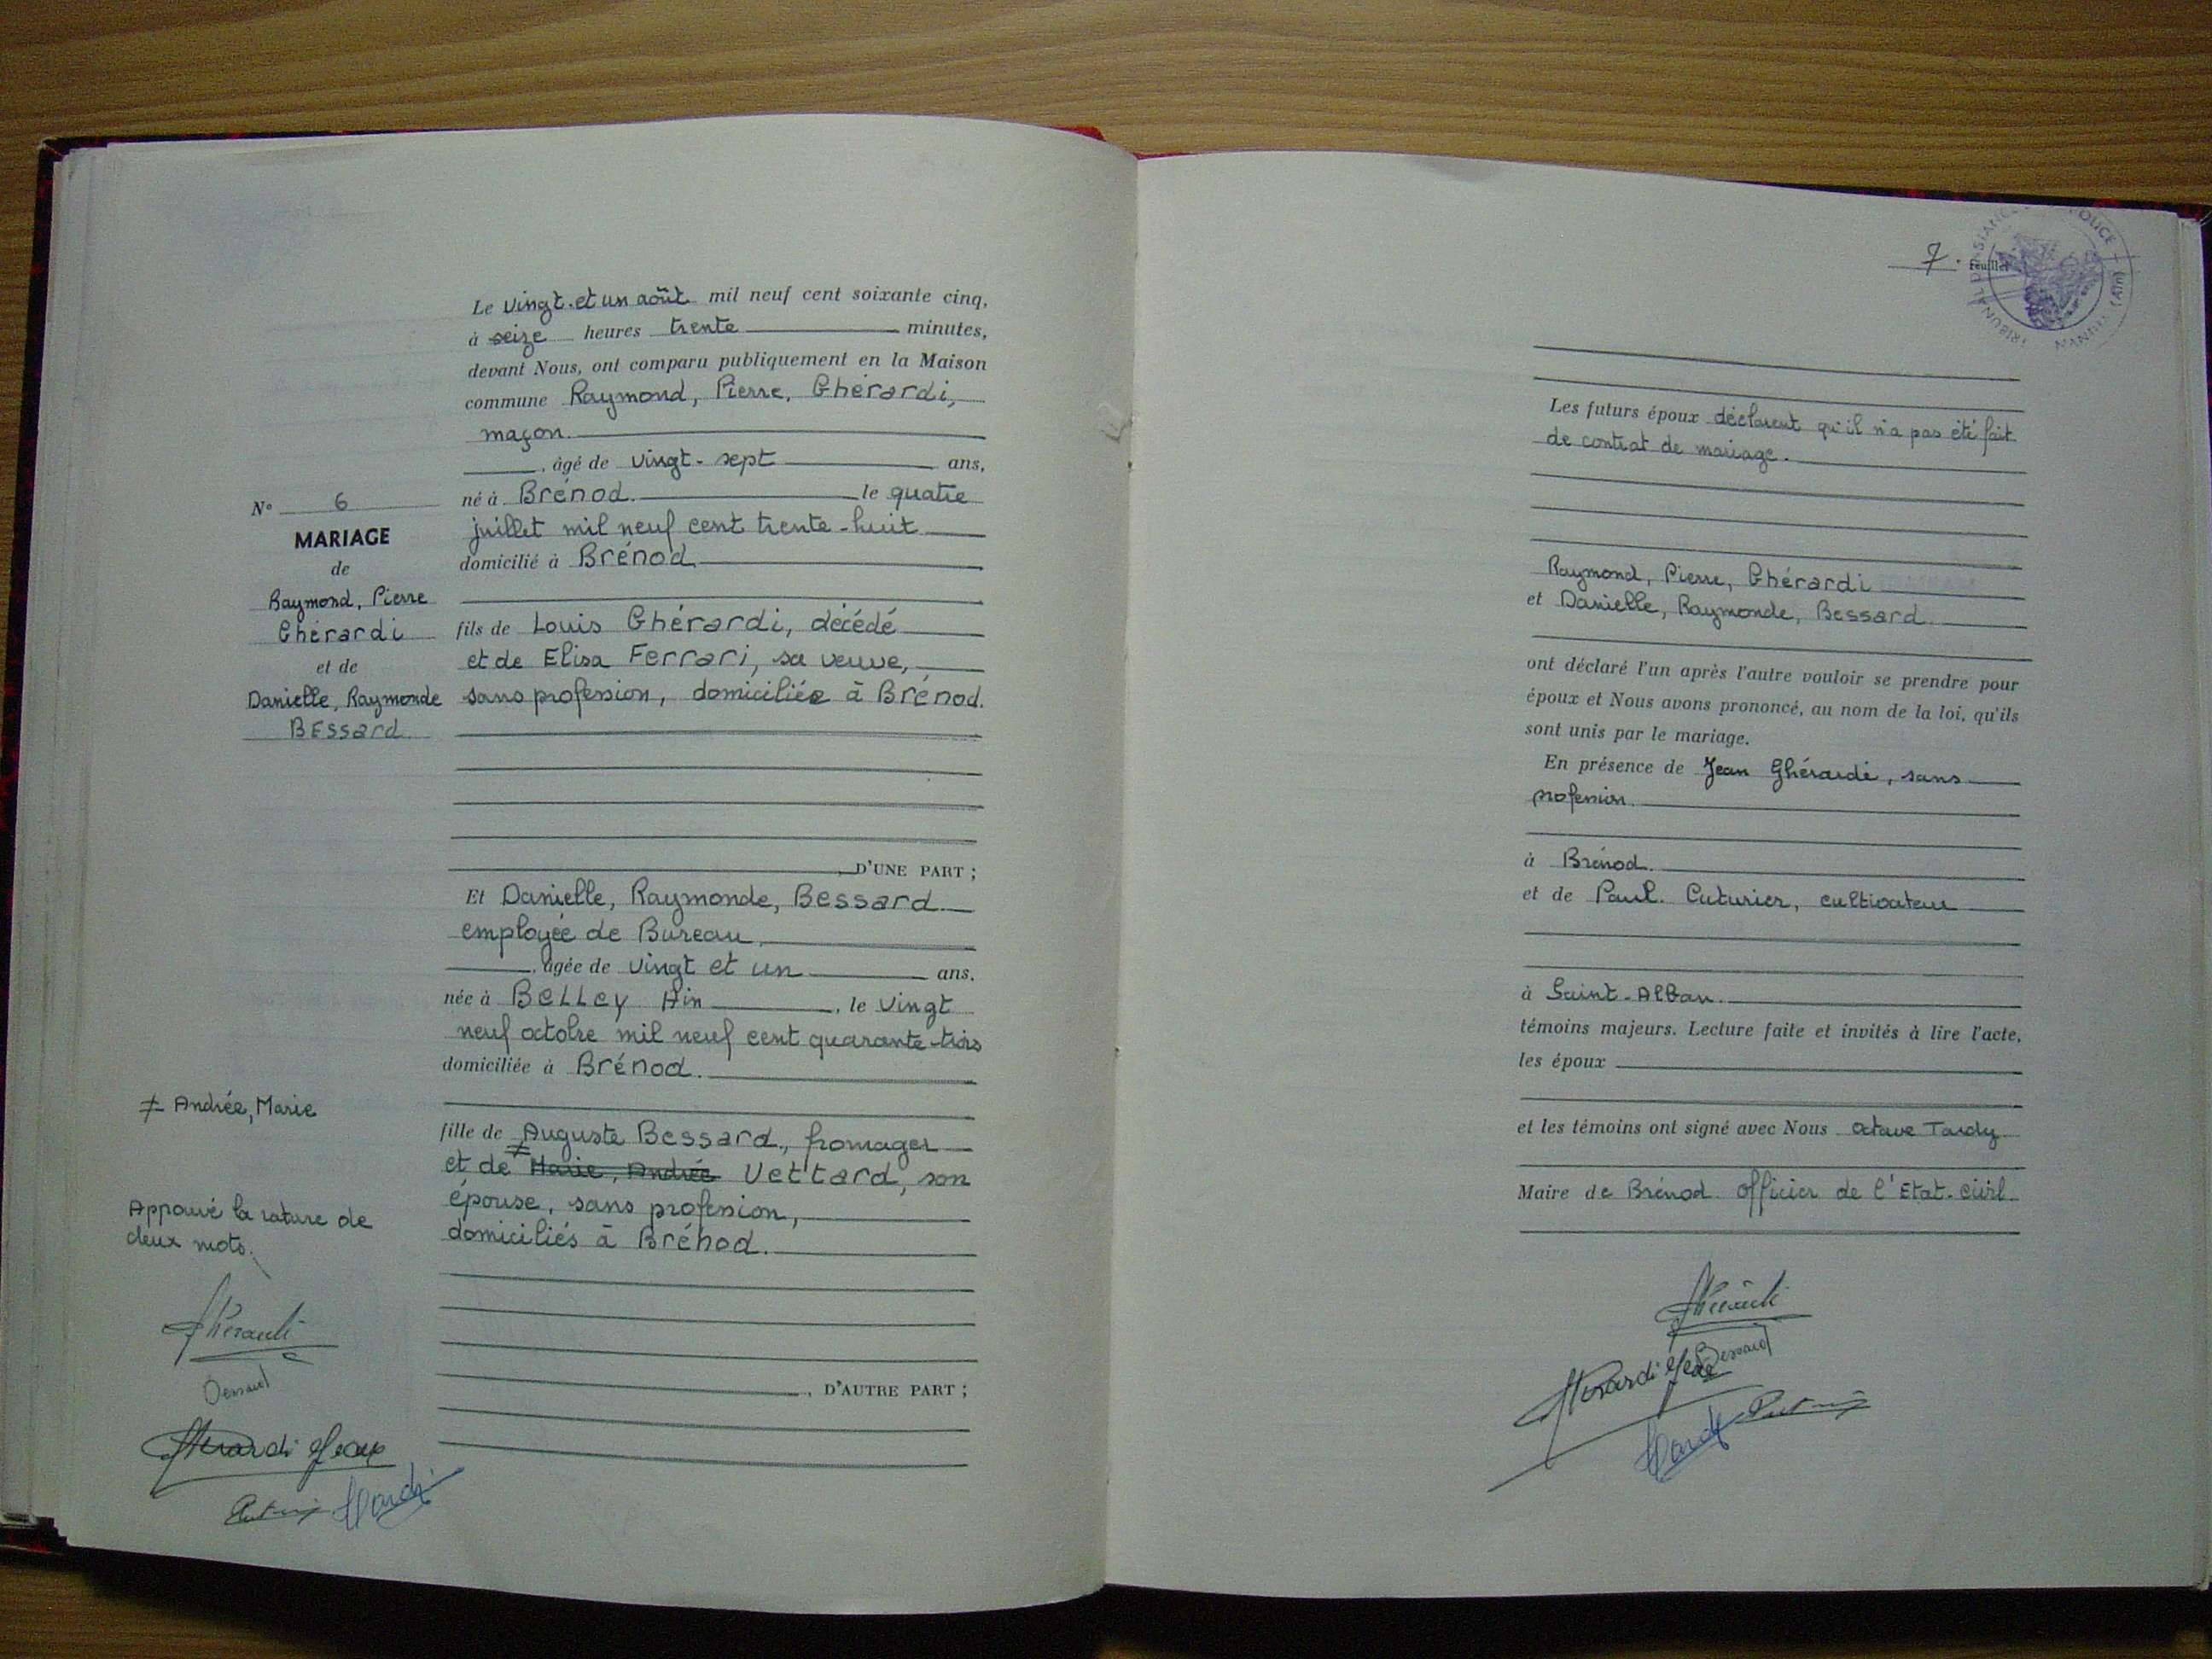 Le vingt-et un août mil neuf cent soixante cinq,
à seize heures trente minutes,
devant Nous, ont comparu publiquement en la Maison
commune Raymond, Pierre, Ghérardi,
maçon.
, âgé de vingt-sept ans,
né à Brénod. le quatre
juillet mil neuf cent trente-huit
domicilié à Brénod
fils de Louis Ghérardi, décédé
et de Elisa Ferrari, sa veuve,
sans profession, domiciliée à Brénod.
D'UNE PART ;
Et Danielle, Raymonde, Bessard
employée de Bureau,
, âgée de vingt et un ans.
née à BELLEY Ain , le vingt
neuf octobre mil neuf cent quarante-trois
domiciliée à Brénod.
fille de Auguste Bessard, fromager
et de ≠ Marie, Andrée Vettard, son
épouse, sans profession,
domiciliés à Brénod.
, D'AUTRE PART ;
N° 6
MARIAGE
de
Raymond, Pierre
Ghérardi
et de
Danielle, Raymonde
BEssard
≠ Andrée, Marie
Appouvé la rature de
deux mots.
Bessard
Gherardi Jean
7. Feuillet
Les futurs époux déclarent qu'il n'a pas été fait
de contrat de mariage.
Raymond, Pierre, Ghérardi
et Danielle, Raymonde, Bessard.
ont déclaré l'un après l'autre vouloir se prendre pour
époux et Nous avons prononcé, au nom de la loi, qu'ils
sont unis par le mariage.
En présence de Jean Ghérardi, sans
profession.
à Brénod.
et de Paul. Cuturier, cultivateur
à Saint-Alban.
témoins majeurs. Lecture faite et invités à lire l'acte,
les époux
et les témoins ont signé avec Nous Octave Tardy
Maire de Brénod officier de l'Etat-civil
Bessard
Gherardi Jean